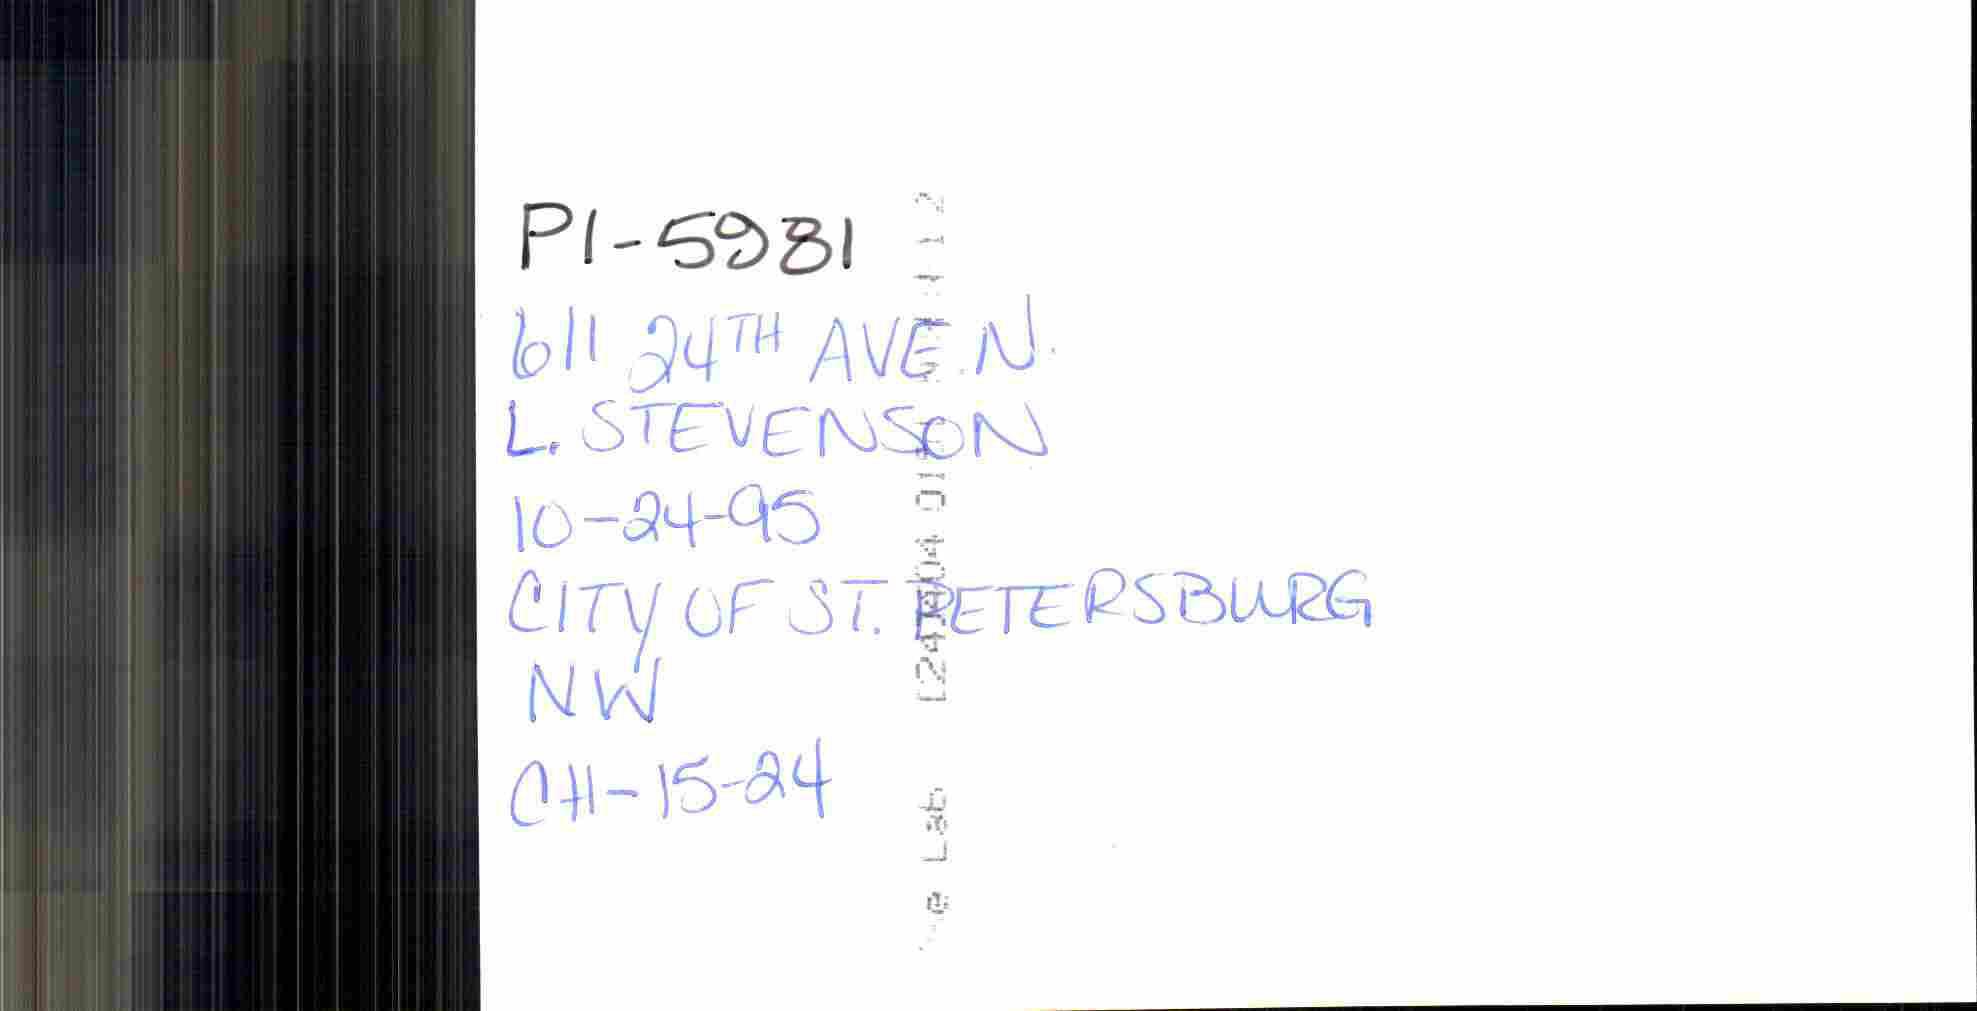 PI-5981
611 24TH AVE. N.
L. STEVENSON
10-24-95
CITY OF ST. PETERSBURG
NW
CH-15-24
Lab